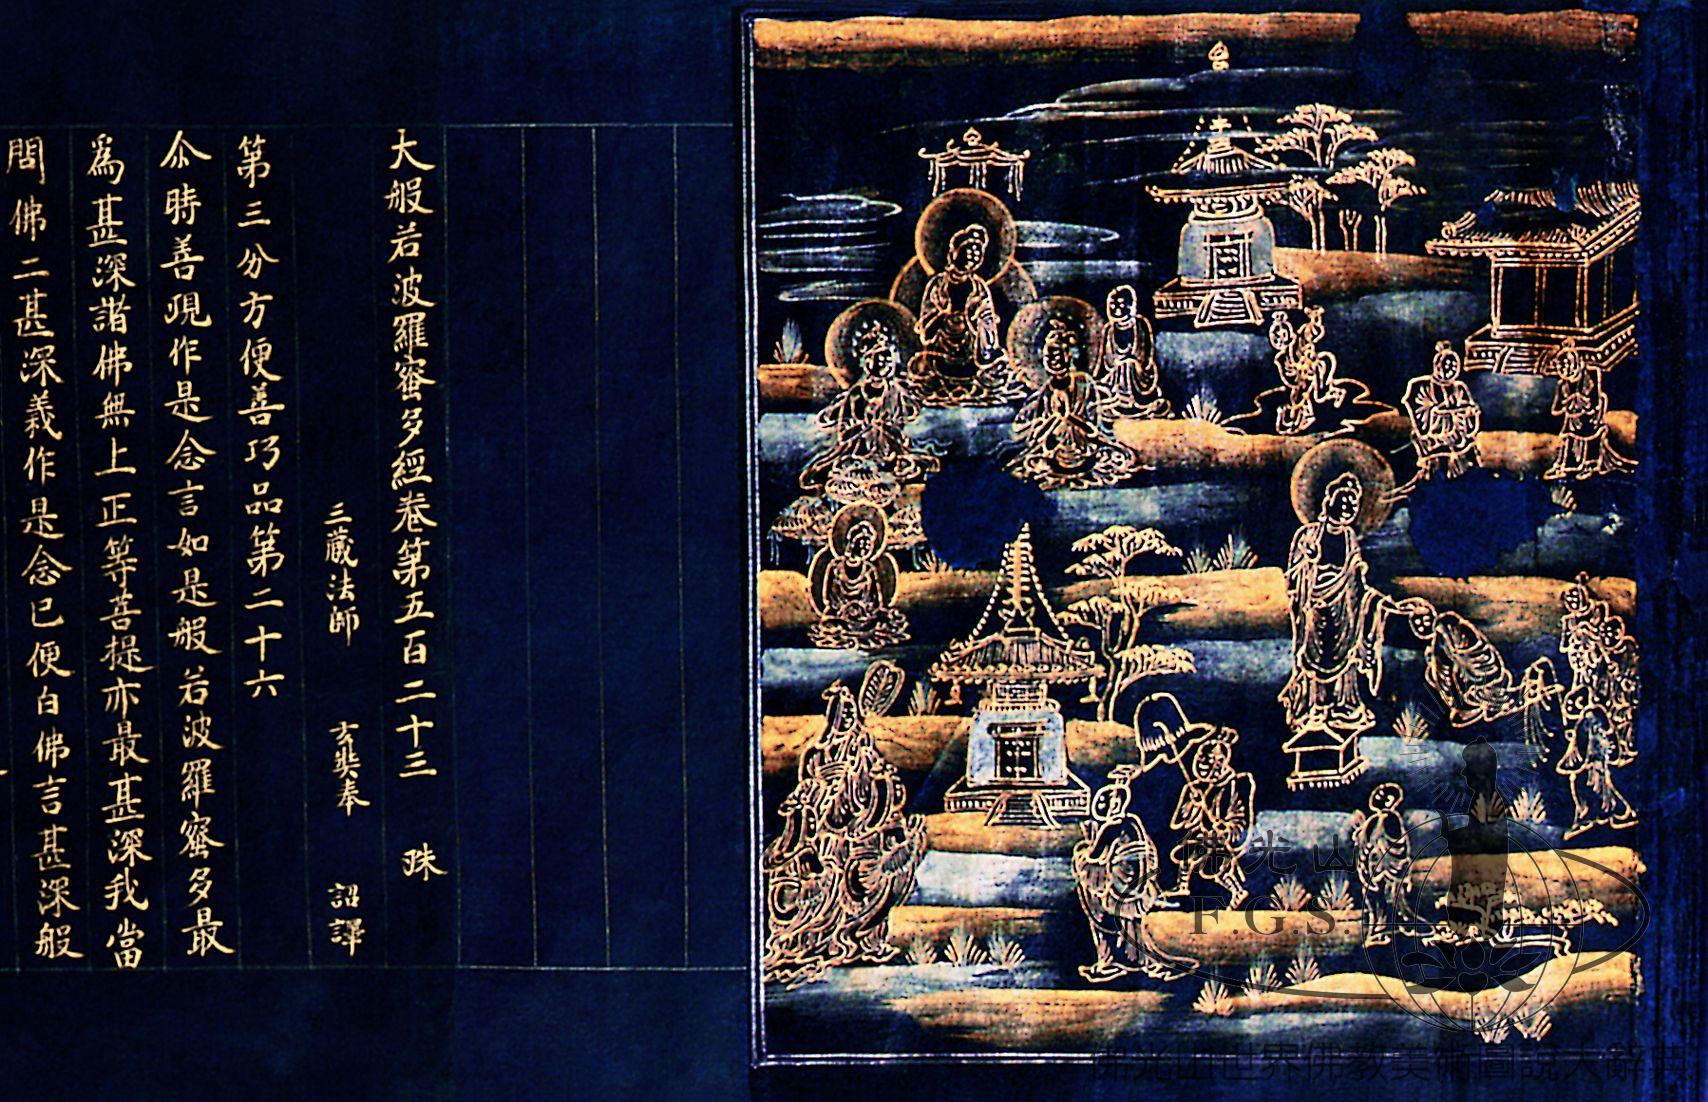 大般若波羅蜜多經卷第五百二十三 珠
三藏法師 玄奘奉 詔譯
第三分方便善巧品第二十六
尒時善現作是念言如是般若波羅蜜多最
為甚深諸佛無上正等菩提亦最甚深我當
問佛二甚深義作是念已便白佛言甚深般
佛光山
F.G.S.
佛光山世界佛教美術圖說大辭典